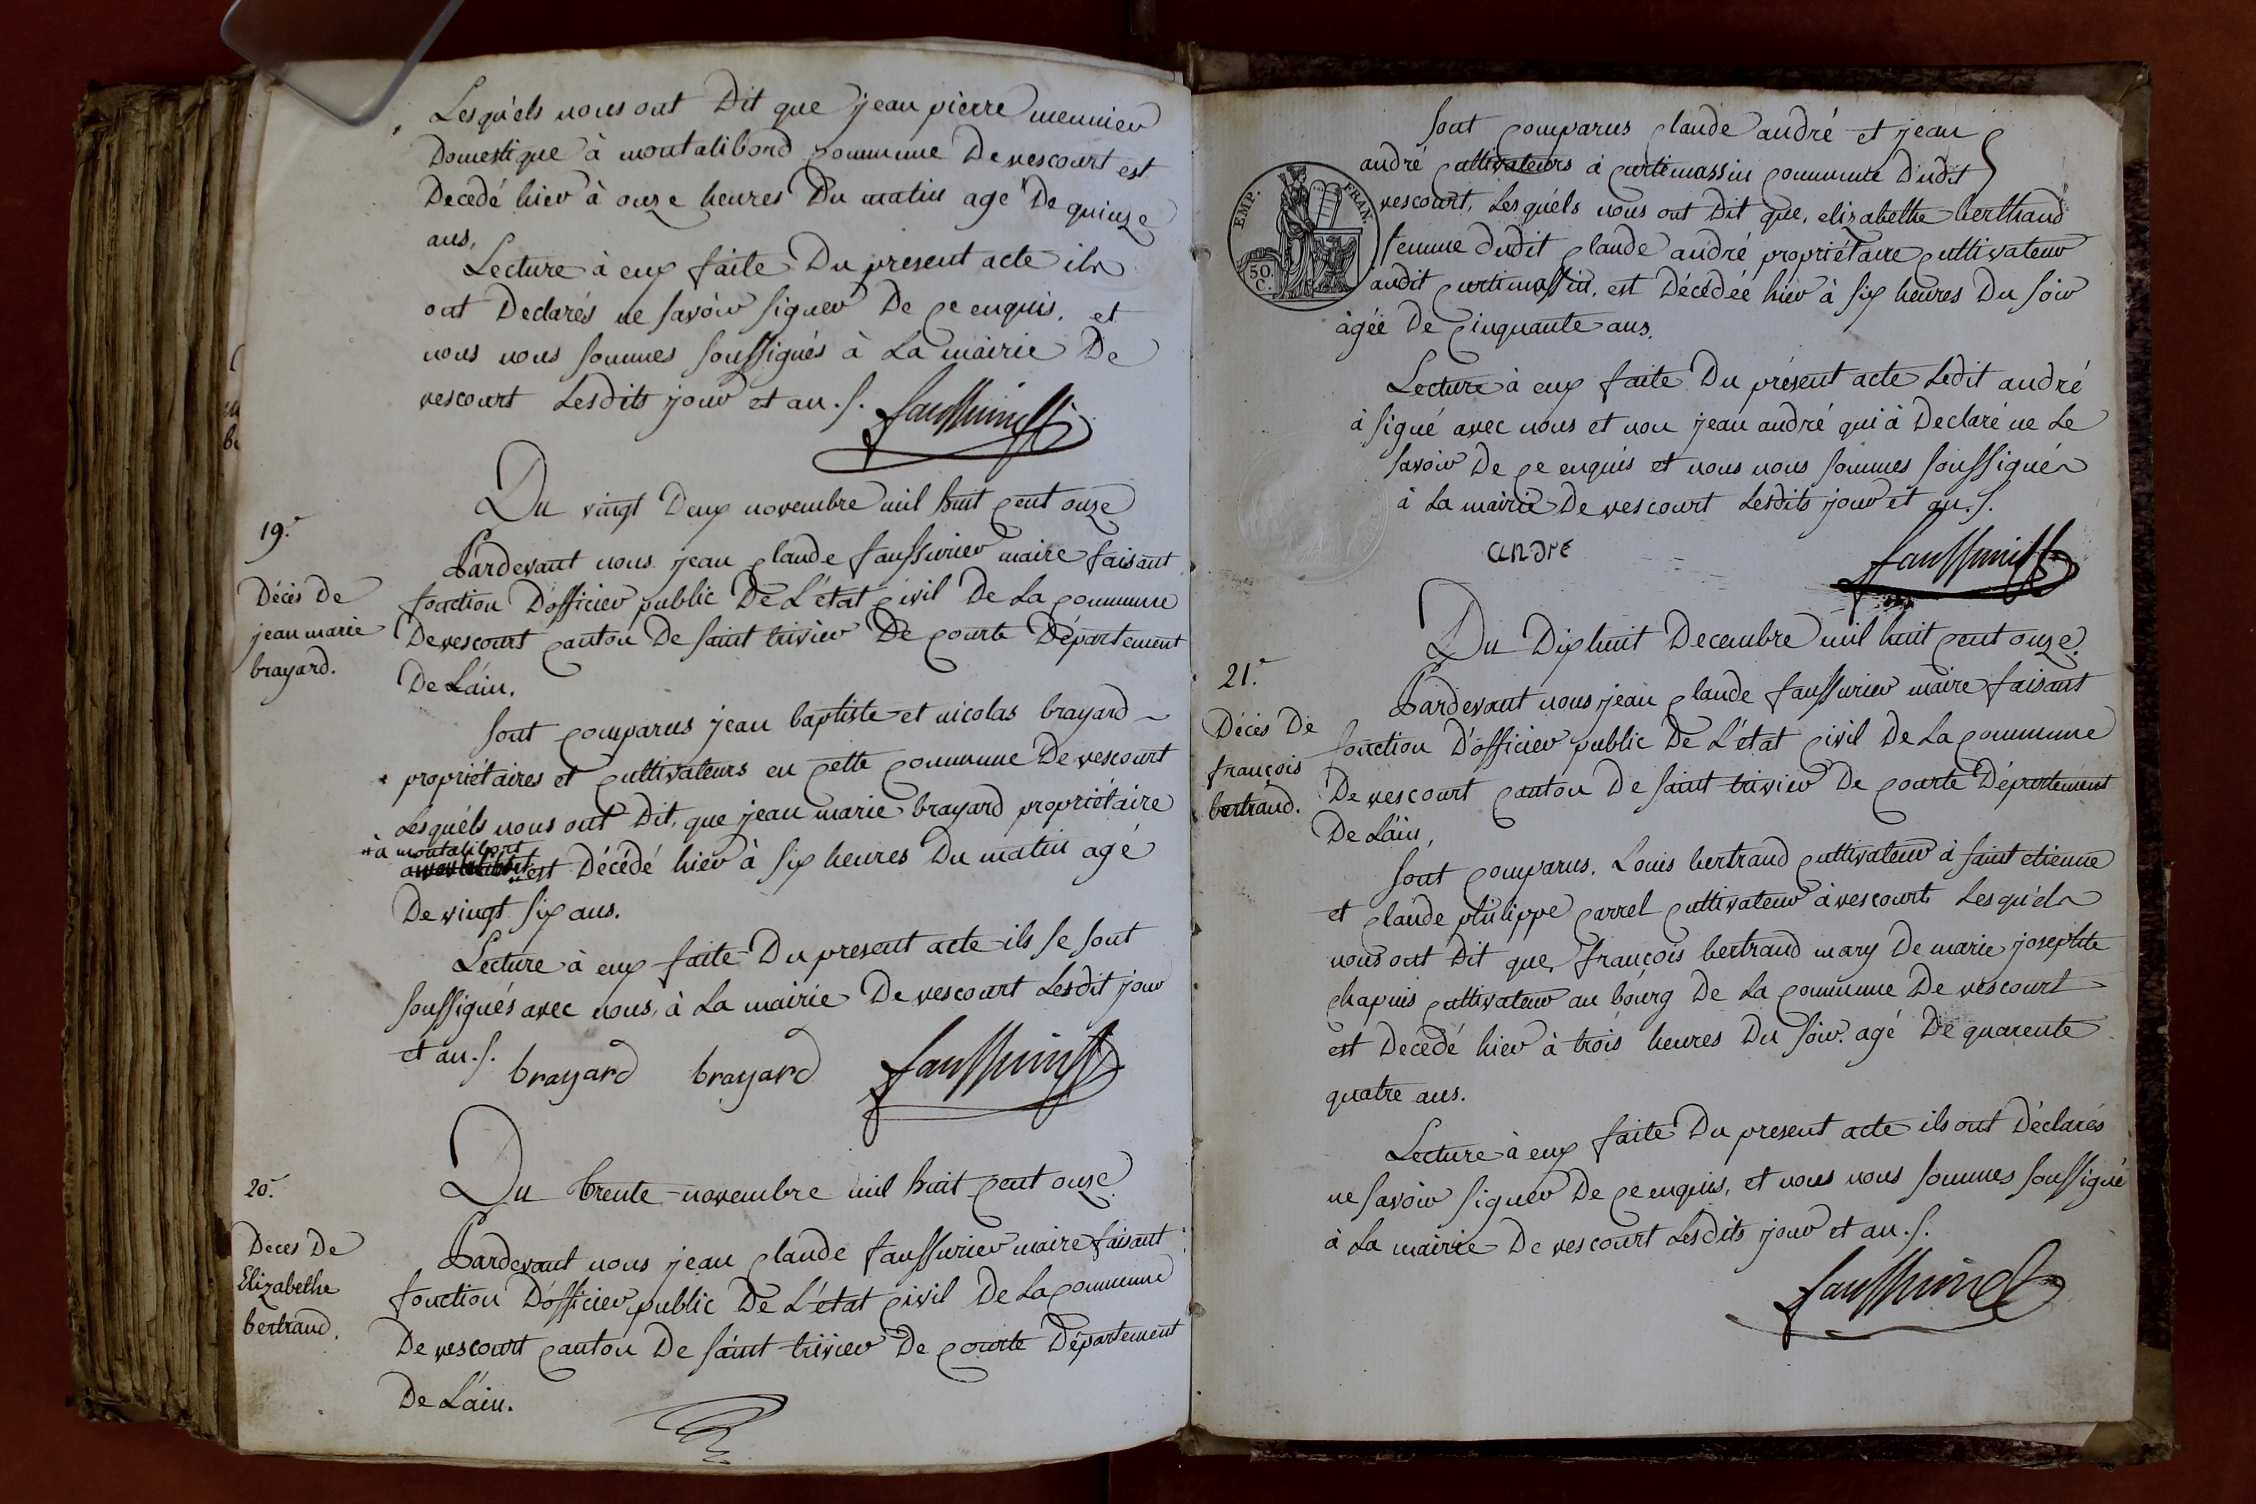 Lesquéls nous ont Dit que jean pierre meunier
Domestique à montalibord commune De vescourt est
Decedé hier à onze heures Du matin agé De quinze
ans,
Lecture à eux faite Du present acte ils
ont Declarés ne savoir signer De ce enquis, et
nous nous sommes soussignés à La mairie De
vescourt Lesdits jour et an.
Du vingt Deux novembre mil huit cent onze
19.
Pardevant nous jean claude faussurier maire faisant
Décès De
jean marie
brayard.
fonction D'officier public De L'état civil De La commune
De vescourt canton De saint trivier De courte Département
De L'ain.
sont comparus jean baptiste et nicolas brayard
propriétaires et cultivateurs en cette commune De vescourt
Lesquéls nous ont Dit, que jean marie brayard propriétaire
à montalibort
est Décédé hier à six heures Du matin agé
De vingt six ans.
Lecture à eux faite Du present acte ils se sont
soussignés avec nous, à La mairie De vescourt Lesdit jour
et an.
brayard brayard
Du trente novembre mil huit cent onze
20.
Deces De
Elizabethe
bertrand.
Pardevant nous jean claude faussurier maire faisant
fonction D'officier public De L'état civil De La commune
De vescourt canton De saint trivier De courte Département
De L'ain.
sont comparus claude andré et jean
andré cultivateurs à curtimassin commune Dudit
vescourt, Lesquéls nous ont Dit que, elizabethe berthand
femme dudit claude andré propriétaire cultivateur
audit curtimassin, est Décédée hier à six heures Du soir
àgée De cinquante ans.
EMP. FRAN.
50.
C.
Lecture à eux faite Du présent acte Ledit andré
à signé avec nous et non jean andré qui à Declaré ne Le
savoir De ce enquis et nous nous sommes soussignés
à La mairie De vescourt Lesdits jour et an.
andre
Du Dix huit Decembre mil huit cent onze.
21.
Décès De
françois
bertrand.
Pardevant nous jean claude faussurier maire faisant
fonction D'officier public De L'état civil De La commune
De vescourt canton De saint trivier De courte Département
De L'ain,
sont comparus, Louis bertrand cultivateur à saint etienne
et claude philippe carrel cultivateur à vescourt Lesquéls
nous ont Dit que, françois bertrand mary De marie josephte
chapuis cultivateur au bourg De La commune De vescourt
est Decedé hier à trois heures Du soir. agé De quarente
quatre ans.
Lecture à eux faite Du present acte ils ont Déclarés
ne savoir signer De ce enquis, et nous nous sommes soussigné
à La mairie De vescourt Lesdits jour et an.